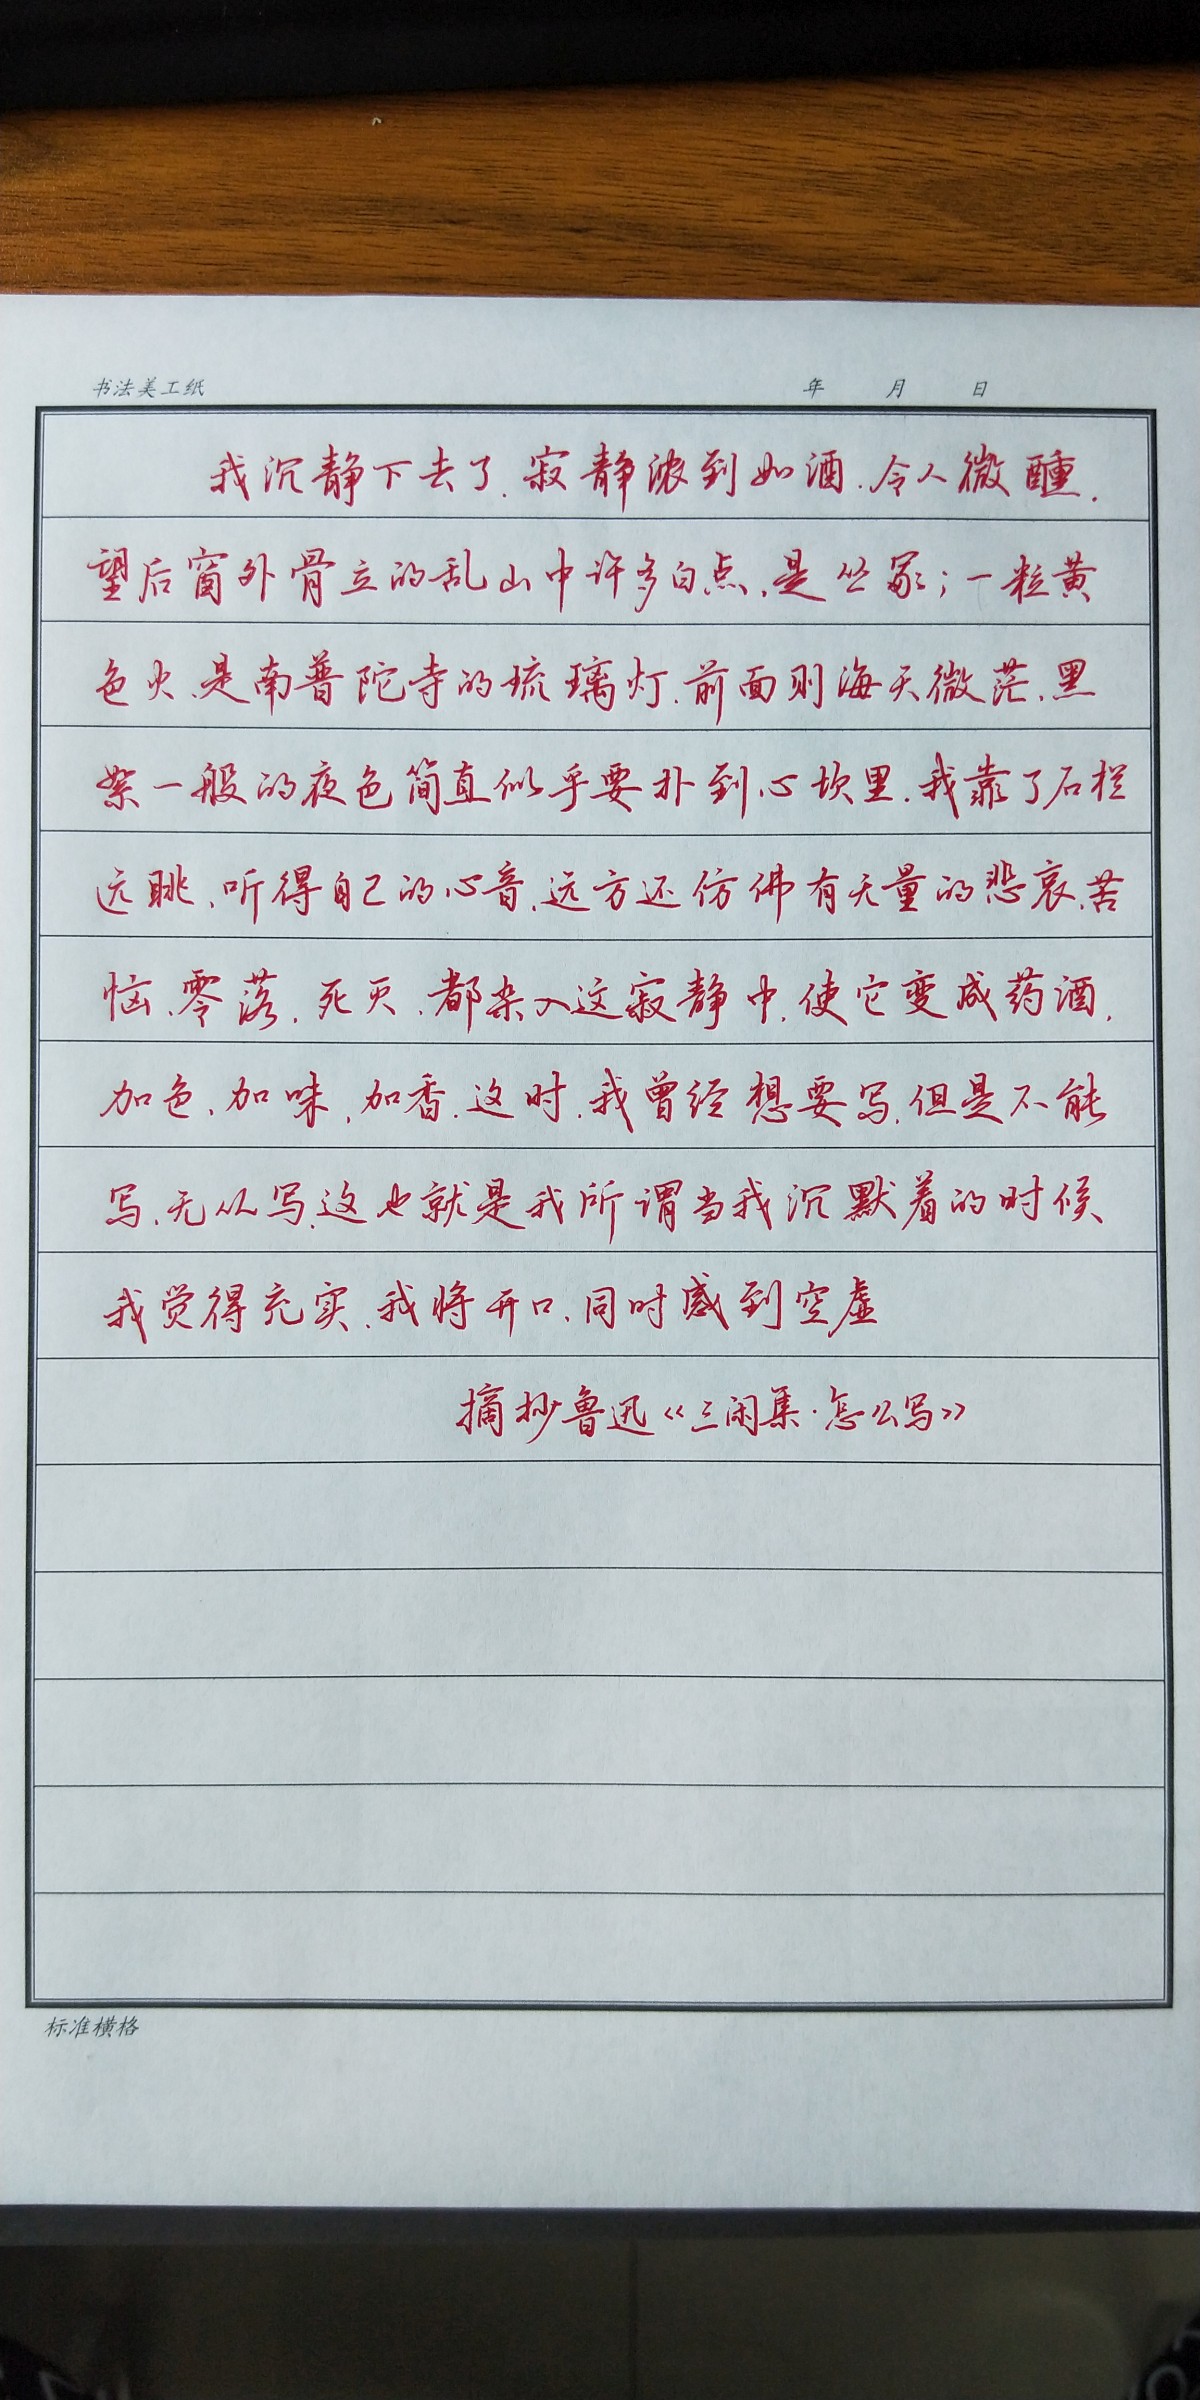 书法美工纸 年 月 日
我沉静下去了.寂静浓到如酒.令人微醺.
望后窗外骨立的乱山中许多白点.是丛冢;一粒黄
色火.是南普陀寺的琉璃灯.前面则海天微茫.黑
絮一般的夜色简直似乎要扑到心坎里.我靠了石栏
远眺.听得自己的心音.远方还仿佛有无量的悲哀.苦
恼.零落.死灭.都杂入这寂静中.使它变成药酒.
加色.加味.加香.这时.我曾经想要写.但是不能
写.无从写.这也就是我所谓当我沉默着的时候
我觉得充实.我将开口.同时感到空虚
摘抄鲁迅《三闲集·怎么写》
标准横格